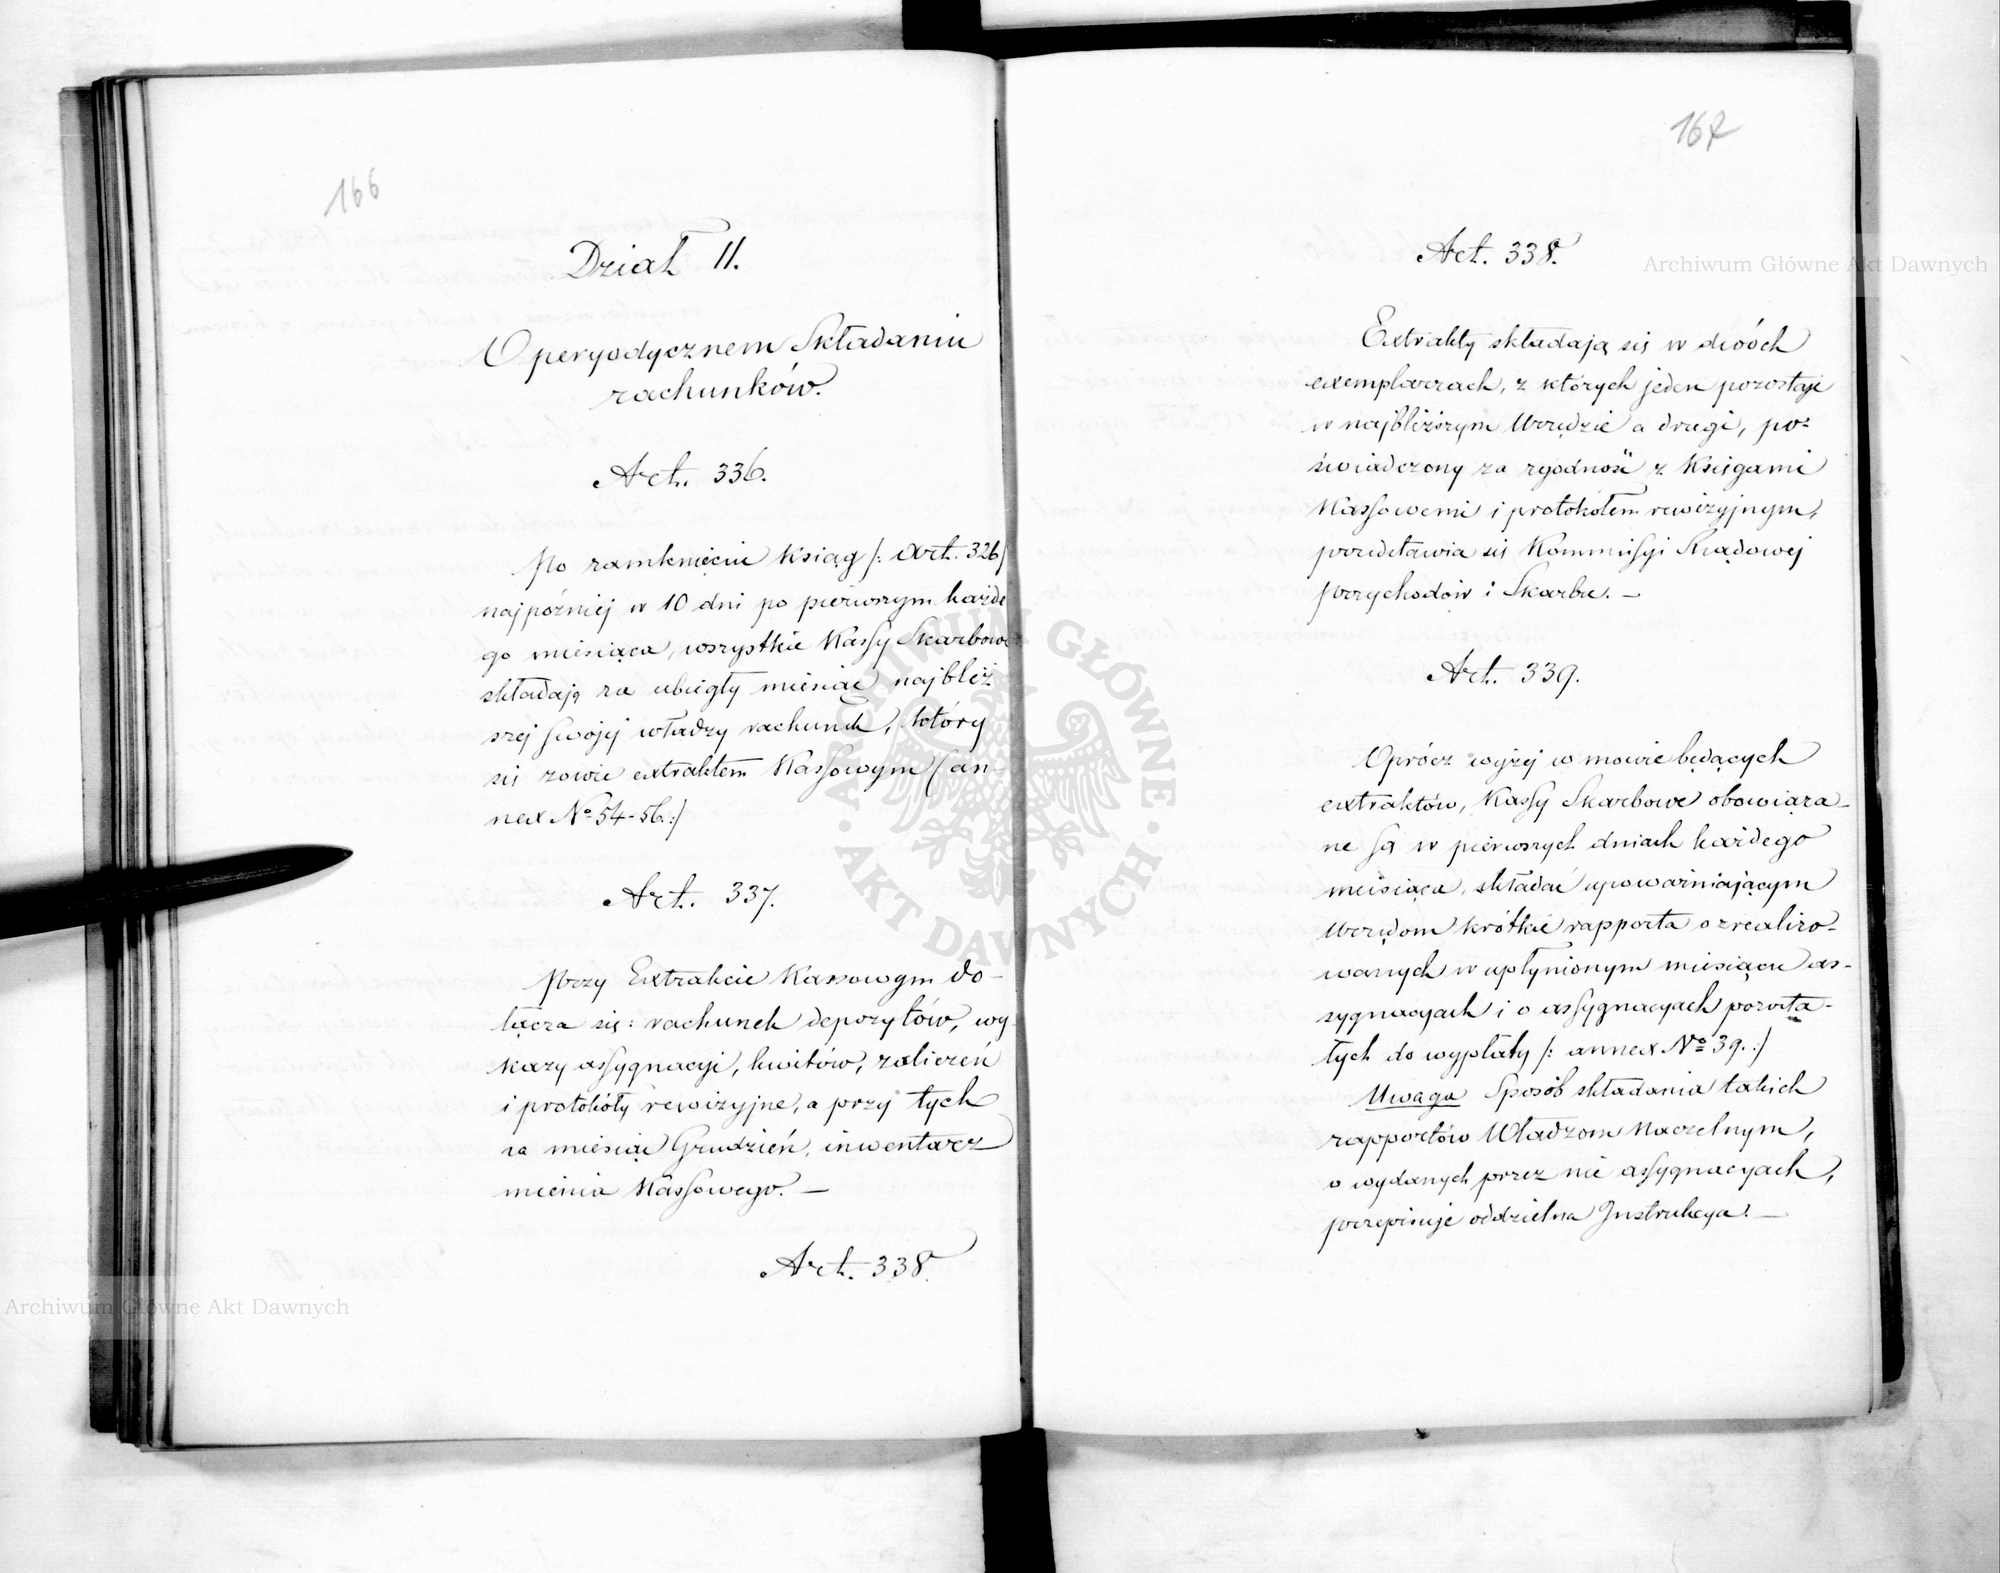 166
Dział II.
O peryodycznem Składaniu
rachunków.
Art. 336.
Po zamknięciu Ksiąg /: art. 326/
najpóźniej w 10 dni po pierwszym każde
go miesiąca, wszystkie Kassy Skarbowe
składają za ubiegły miesiąc najbliż
szej swojej władzy rachunek, który
się zowie extraktem Kassowym (an-
nex Nº 54-56:/
Art. 337.
Przy Extrakcie Kassowym do-
łącza się: rachunek depozytów, wy
kazy assygnacyi, kwitów, zaliczeń
i protokóły rewizyjne, a przy tych
za miesiąc Grudzień, inwentarz
mienia Kassowego. —
Art. 338.
167
Art. 338.
Extrakty składają się w dwóch
exemplarzach, z których jeden pozostaje
w najbliższym Urzędzie a drugi, po-
świadczony za zgodność z Księgami
Kassowemi i protokółem rewizyjnym,
przedstawia się Kommissyi Rządowej
Przychodów i Skarbu. —
Art. 339.
Oprócz wyżej w mowie będących
extraktów, Kassy Skarbowe obowiąza-
ne są w pierwszych dniach każdego
miesiąca, składać upoważniającym
Urzędom krótkie rapporta o zrealizo-
wanych w upłynionym miesiącu as-
sygnacyach i o assygnacyach pozosta-
łych do wypłaty /: annex Nº 39.:/
Uwaga Sposób składania takich
rapportów Władzom Naczelnym,
o wydanych przez nie assygnacyach,
przepisuje oddzielna Instrukcya. —
Archiwum Główne Akt Dawnych
Archiwum Główne Akt Dawnych
ARCHIWUM GŁÓWNE
AKT DAWNYCH